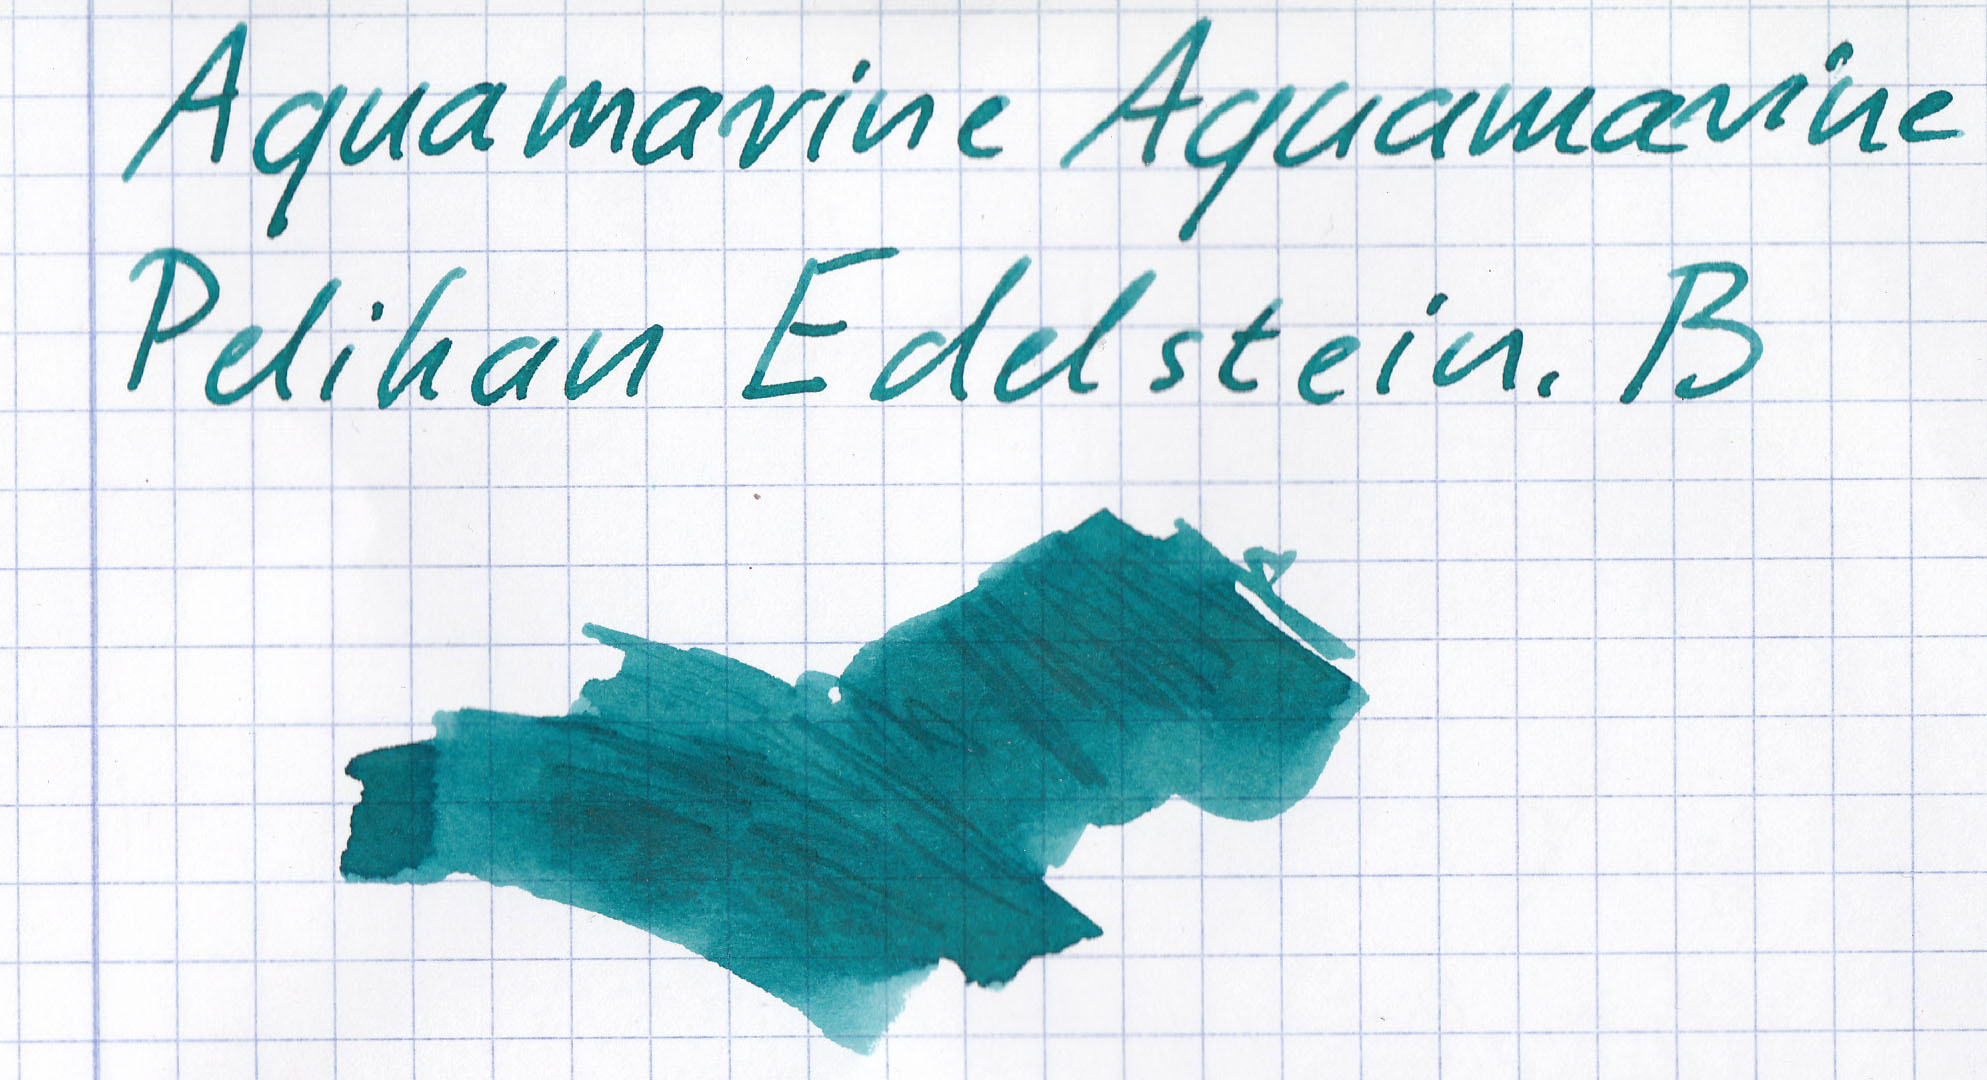 Aquamarine Aquamarine
Pelikan Edelstein. B